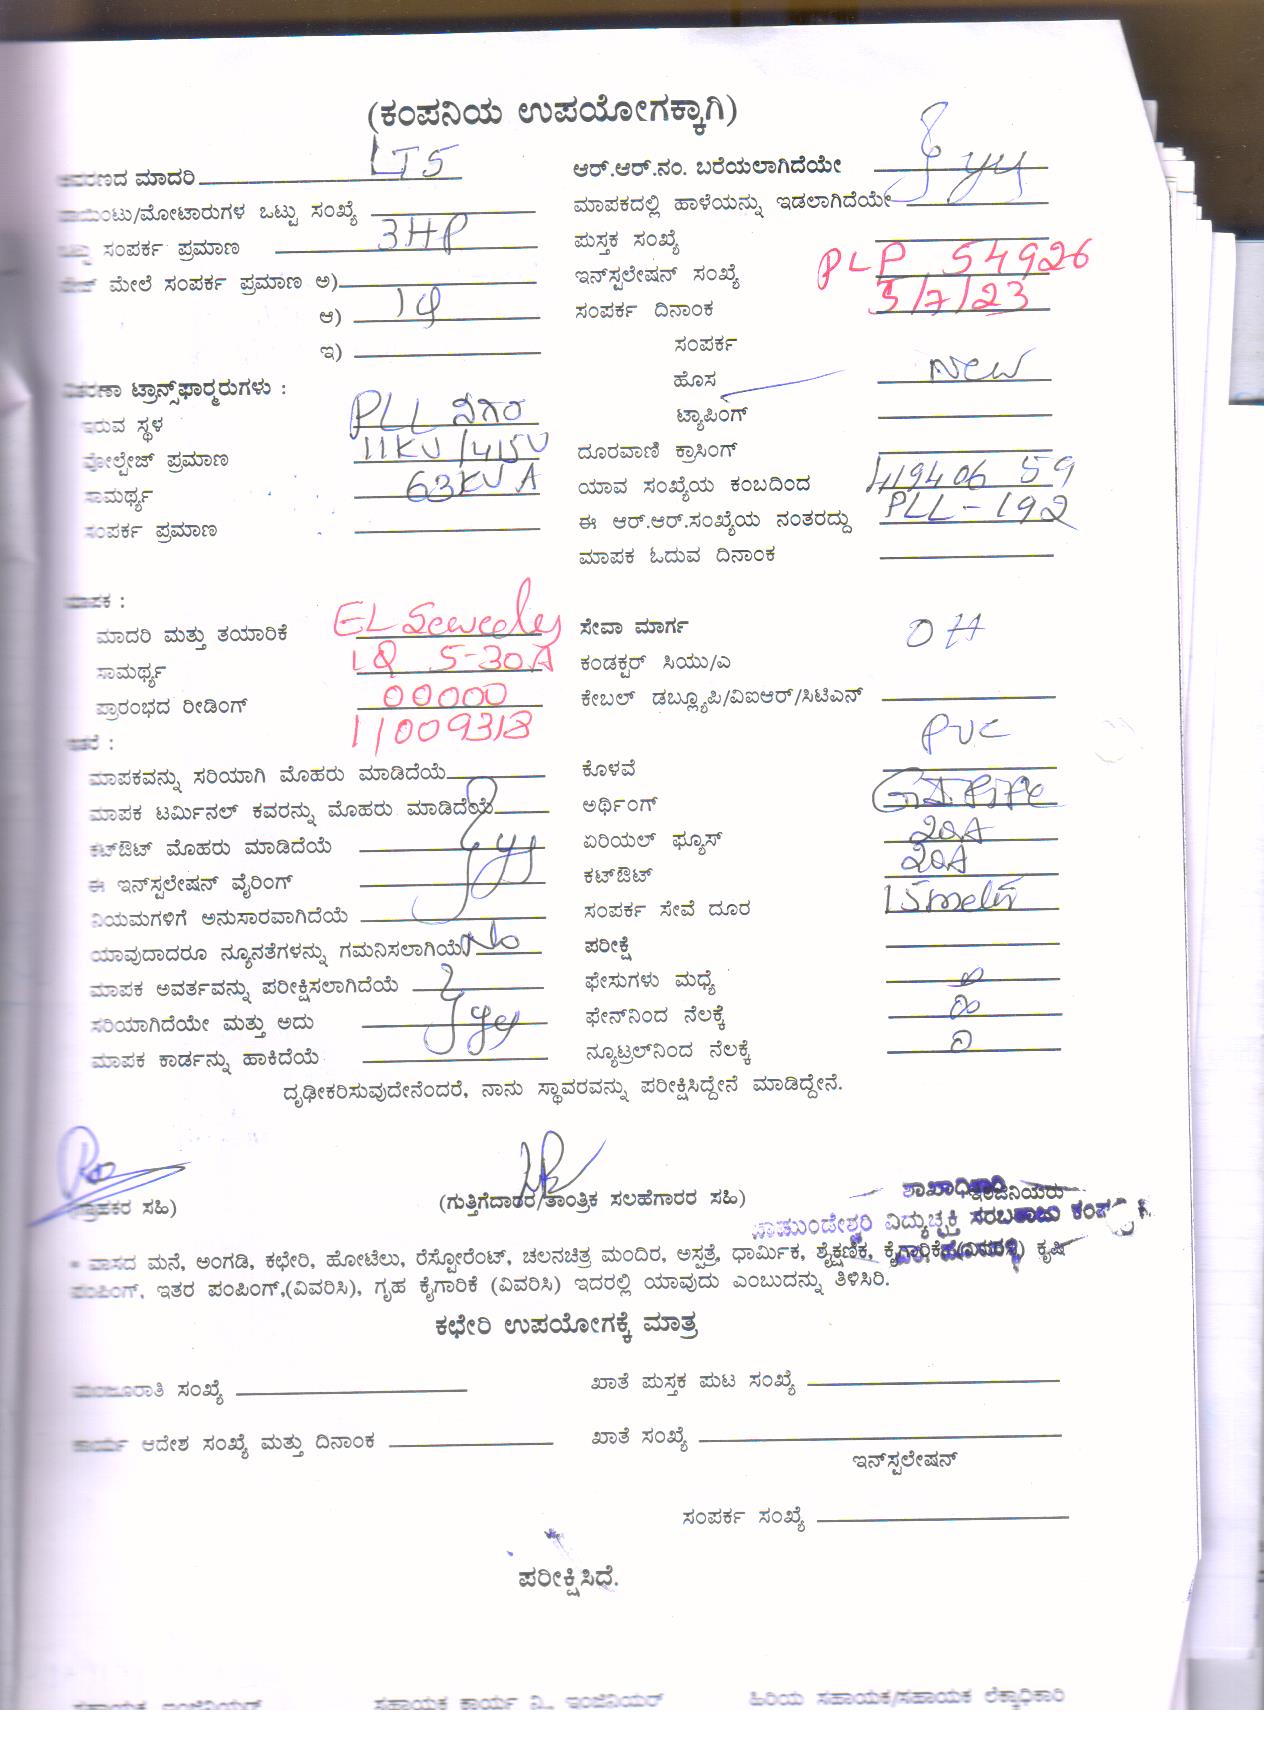 (ಕಂಪನಿಯ ಉಪಯೋಗಕ್ಕಾಗಿ)
ಮಾದರಿ LT5 ಆರ್.ಆರ್.ನಂ. ಬರೆಯಲಾಗಿದೆಯೇ
ಪಾಯಿಂಟು/ಮೋಟಾರುಗಳ ಒಟ್ಟು ಸಂಖ್ಯೆ ಮಾಪಕದಲ್ಲಿ ಹಾಳೆಯನ್ನು ಇಡಲಾಗಿದೆಯೇ
ಒಟ್ಟು ಸಂಪರ್ಕ ಪ್ರಮಾಣ 3HP ಪುಸ್ತಕ ಸಂಖ್ಯೆ
ಮೇಲೆ ಸಂಪರ್ಕ ಪ್ರಮಾಣ ಅ) ಇನ್‌ಸ್ಟಲೇಷನ್ ಸಂಖ್ಯೆ PLP 54926
ಆ) ಸಂಪರ್ಕ ದಿನಾಂಕ 3/7/23
ಇ) ಸಂಪರ್ಕ
ಹೊಸ New
ವಿತರಣಾ ಟ್ರಾನ್ಸ್‌ಫಾರ್ಮರುಗಳು :
ಟ್ಯಾಪಿಂಗ್
ಇರುವ ಸ್ಥಳ PLL ನಗರ
ವೋಲ್ಟೇಜ್ ಪ್ರಮಾಣ 11KV/415V ದೂರವಾಣಿ ಕ್ರಾಸಿಂಗ್
ಸಾಮರ್ಥ್ಯ 63KVA ಯಾವ ಸಂಖ್ಯೆಯ ಕಂಬದಿಂದ
ಸಂಪರ್ಕ ಪ್ರಮಾಣ ಈ ಆರ್.ಆರ್.ಸಂಖ್ಯೆಯ ನಂತರದ್ದು PLL-192
ಮಾಪಕ ಓದುವ ದಿನಾಂಕ
ಮಾಪಕ :
ಮಾದರಿ ಮತ್ತು ತಯಾರಿಕೆ ಸೇವಾ ಮಾರ್ಗ OH
ಸಾಮರ್ಥ್ಯ 5-30A ಕಂಡಕ್ಟರ್ ಸಿಯು/ಎ
ಪ್ರಾರಂಭದ ರೀಡಿಂಗ್ 00000 ಕೇಬಲ್ ಡಬ್ಲ್ಯೂಪಿ/ವಿಐಆರ್/ಸಿಟಿಎನ್
11009318
ಇತರೆ :
PVC
ಮಾಪಕವನ್ನು ಸರಿಯಾಗಿ ಮೊಹರು ಮಾಡಿದೆಯೆ ಕೊಳವೆ
ಮಾಪಕ ಟರ್ಮಿನಲ್ ಕವರನ್ನು ಮೊಹರು ಮಾಡಿದೆಯೆ ಅರ್ಥಿಂಗ್ GI PIPE
ಕಟ್‌ಔಟ್ ಮೊಹರು ಮಾಡಿದೆಯೆ ಏರಿಯಲ್ ಫ್ಯೂಸ್ 20A
ಈ ಇನ್‌ಸ್ಟಲೇಷನ್ ವೈರಿಂಗ್ ಕಟ್‌ಔಟ್ 20A
ನಿಯಮಗಳಿಗೆ ಅನುಸಾರವಾಗಿದೆಯೆ ಸಂಪರ್ಕ ಸೇವೆ ದೂರ 15meter
ಯಾವುದಾದರೂ ನ್ಯೂನತೆಗಳನ್ನು ಗಮನಿಸಲಾಗಿಯೆ No ಪರೀಕ್ಷೆ
ಮಾಪಕ ಅವರ್ತವನ್ನು ಪರೀಕ್ಷಿಸಲಾಗಿದೆಯೆ ಫೇಸುಗಳು ಮಧ್ಯೆ
ಸರಿಯಾಗಿದೆಯೇ ಮತ್ತು ಅದು ಫೇಸ್‌ನಿಂದ ನೆಲಕ್ಕೆ
ಮಾಪಕ ಕಾರ್ಡನ್ನು ಹಾಕಿದೆಯೆ ನ್ಯೂಟ್ರಲ್‌ನಿಂದ ನೆಲಕ್ಕೆ
ದೃಢೀಕರಿಸುವುದೇನೆಂದರೆ, ನಾನು ಸ್ಥಾವರವನ್ನು ಪರೀಕ್ಷಿಸಿದ್ದೇನೆ ಮಾಡಿದ್ದೇನೆ.
(ಗ್ರಾಹಕರ ಸಹಿ) (ಗುತ್ತಿಗೆದಾರರ/ತಾಂತ್ರಿಕ ಸಲಹೆಗಾರರ ಸಹಿ) ಶಾಖಾಧಿಕಾರಿ
ಚಾಮುಂಡೇಶ್ವರಿ ವಿದ್ಯುಚ್ಛಕ್ತಿ ಸರಬರಾಜು
* ವಾಸದ ಮನೆ, ಅಂಗಡಿ, ಕಛೇರಿ, ಹೋಟೆಲು, ರೆಸ್ಟೋರೆಂಟ್, ಚಲನಚಿತ್ರ ಮಂದಿರ, ಅಸ್ಪತ್ರೆ, ಧಾರ್ಮಿಕ, ಶೈಕ್ಷಣಿಕ, ಕೈಗಾರಿಕೆ ಕೃಷಿ
ಪಂಪಿಂಗ್, ಇತರ ಪಂಪಿಂಗ್,(ವಿವರಿಸಿ), ಗೃಹ ಕೈಗಾರಿಕೆ (ವಿವರಿಸಿ) ಇದರಲ್ಲಿ ಯಾವುದು ಎಂಬುದನ್ನು ತಿಳಿಸಿರಿ.
ಕಛೇರಿ ಉಪಯೋಗಕ್ಕೆ ಮಾತ್ರ
ಮಂಜೂರಾತಿ ಸಂಖ್ಯೆ ಖಾತೆ ಪುಸ್ತಕ ಪುಟ ಸಂಖ್ಯೆ
ಕಾರ್ಯ ಆದೇಶ ಸಂಖ್ಯೆ ಮತ್ತು ದಿನಾಂಕ ಖಾತೆ ಸಂಖ್ಯೆ
ಇನ್‌ಸ್ಟಲೇಷನ್
ಸಂಪರ್ಕ ಸಂಖ್ಯೆ
ಪರೀಕ್ಷಿಸಿದೆ.
ಸಹಾಯಕ ಇಂಜಿನಿಯರ್ ಸಹಾಯಕ ಕಾರ್ಯ ನಿ., ಇಂಜಿನಿಯರ್ ಹಿರಿಯ ಸಹಾಯಕ/ಸಹಾಯಕ ಲೆಕ್ಕಾಧಿಕಾರಿ